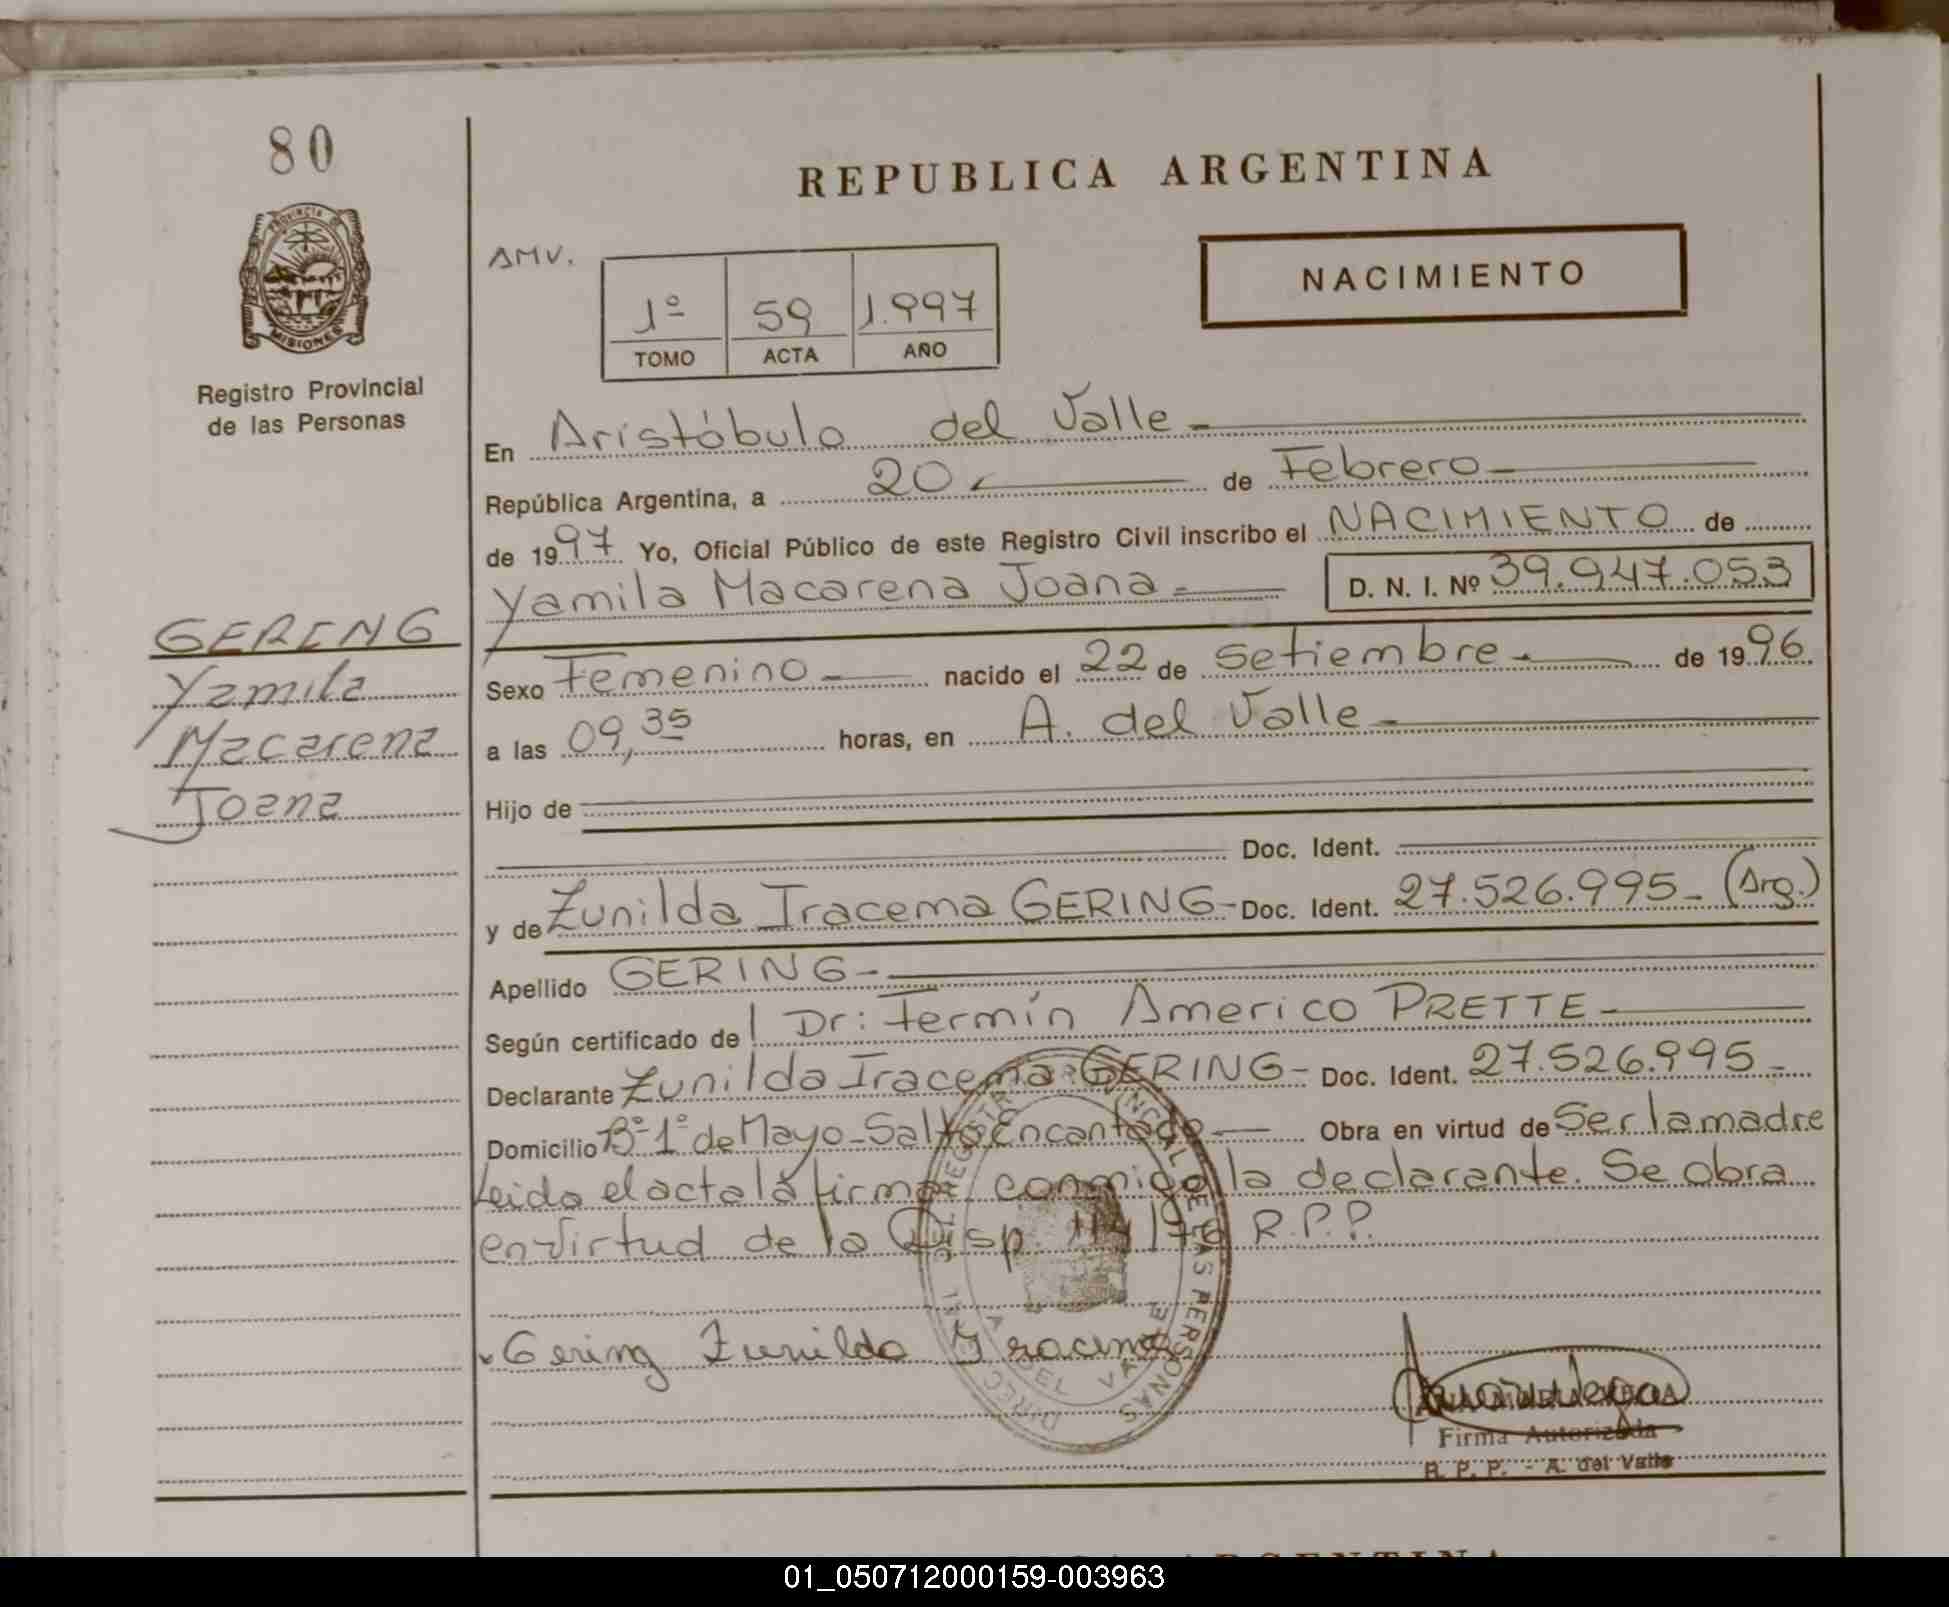 80
PROVINCIA DE
MISIONES
Registro Provincial
de las Personas
GERING
Yamila
Macarena
Joana
REPUBLICA ARGENTINA
AMV.
1º 59 1.997
TOMO ACTA AÑO
NACIMIENTO
En Aristóbulo del Valle
República Argentina, a 20 de Febrero
de 1997 Yo, Oficial Público de este Registro Civil inscribo el NACIMIENTO de
Yamila Macarena Joana D. N. I. Nº 39.947.053
Sexo Femenino nacido el 22 de Setiembre de 1996
a las 09,35 horas, en A. del Valle
Hijo de
Doc. Ident.
y de Zunilda Iracema GERING Doc. Ident. 27.526.995 (Arg.)
Apellido GERING
Según certificado de Dr: Fermín Americo PRETTE
Declarante Zunilda Iracema GERING Doc. Ident. 27.526.995
Domicilio Bº 1º de Mayo - Salto Encantado Obra en virtud de Ser la madre
Leida el acta la firma conmigo la declarante. Se obra
en virtud de la Disp. /76 R.P.P.
Gering Zunilda Iracema
Firma Autorizada
R. P. P. - A. del Valle
ARGENTINA
01_050712000159-003963